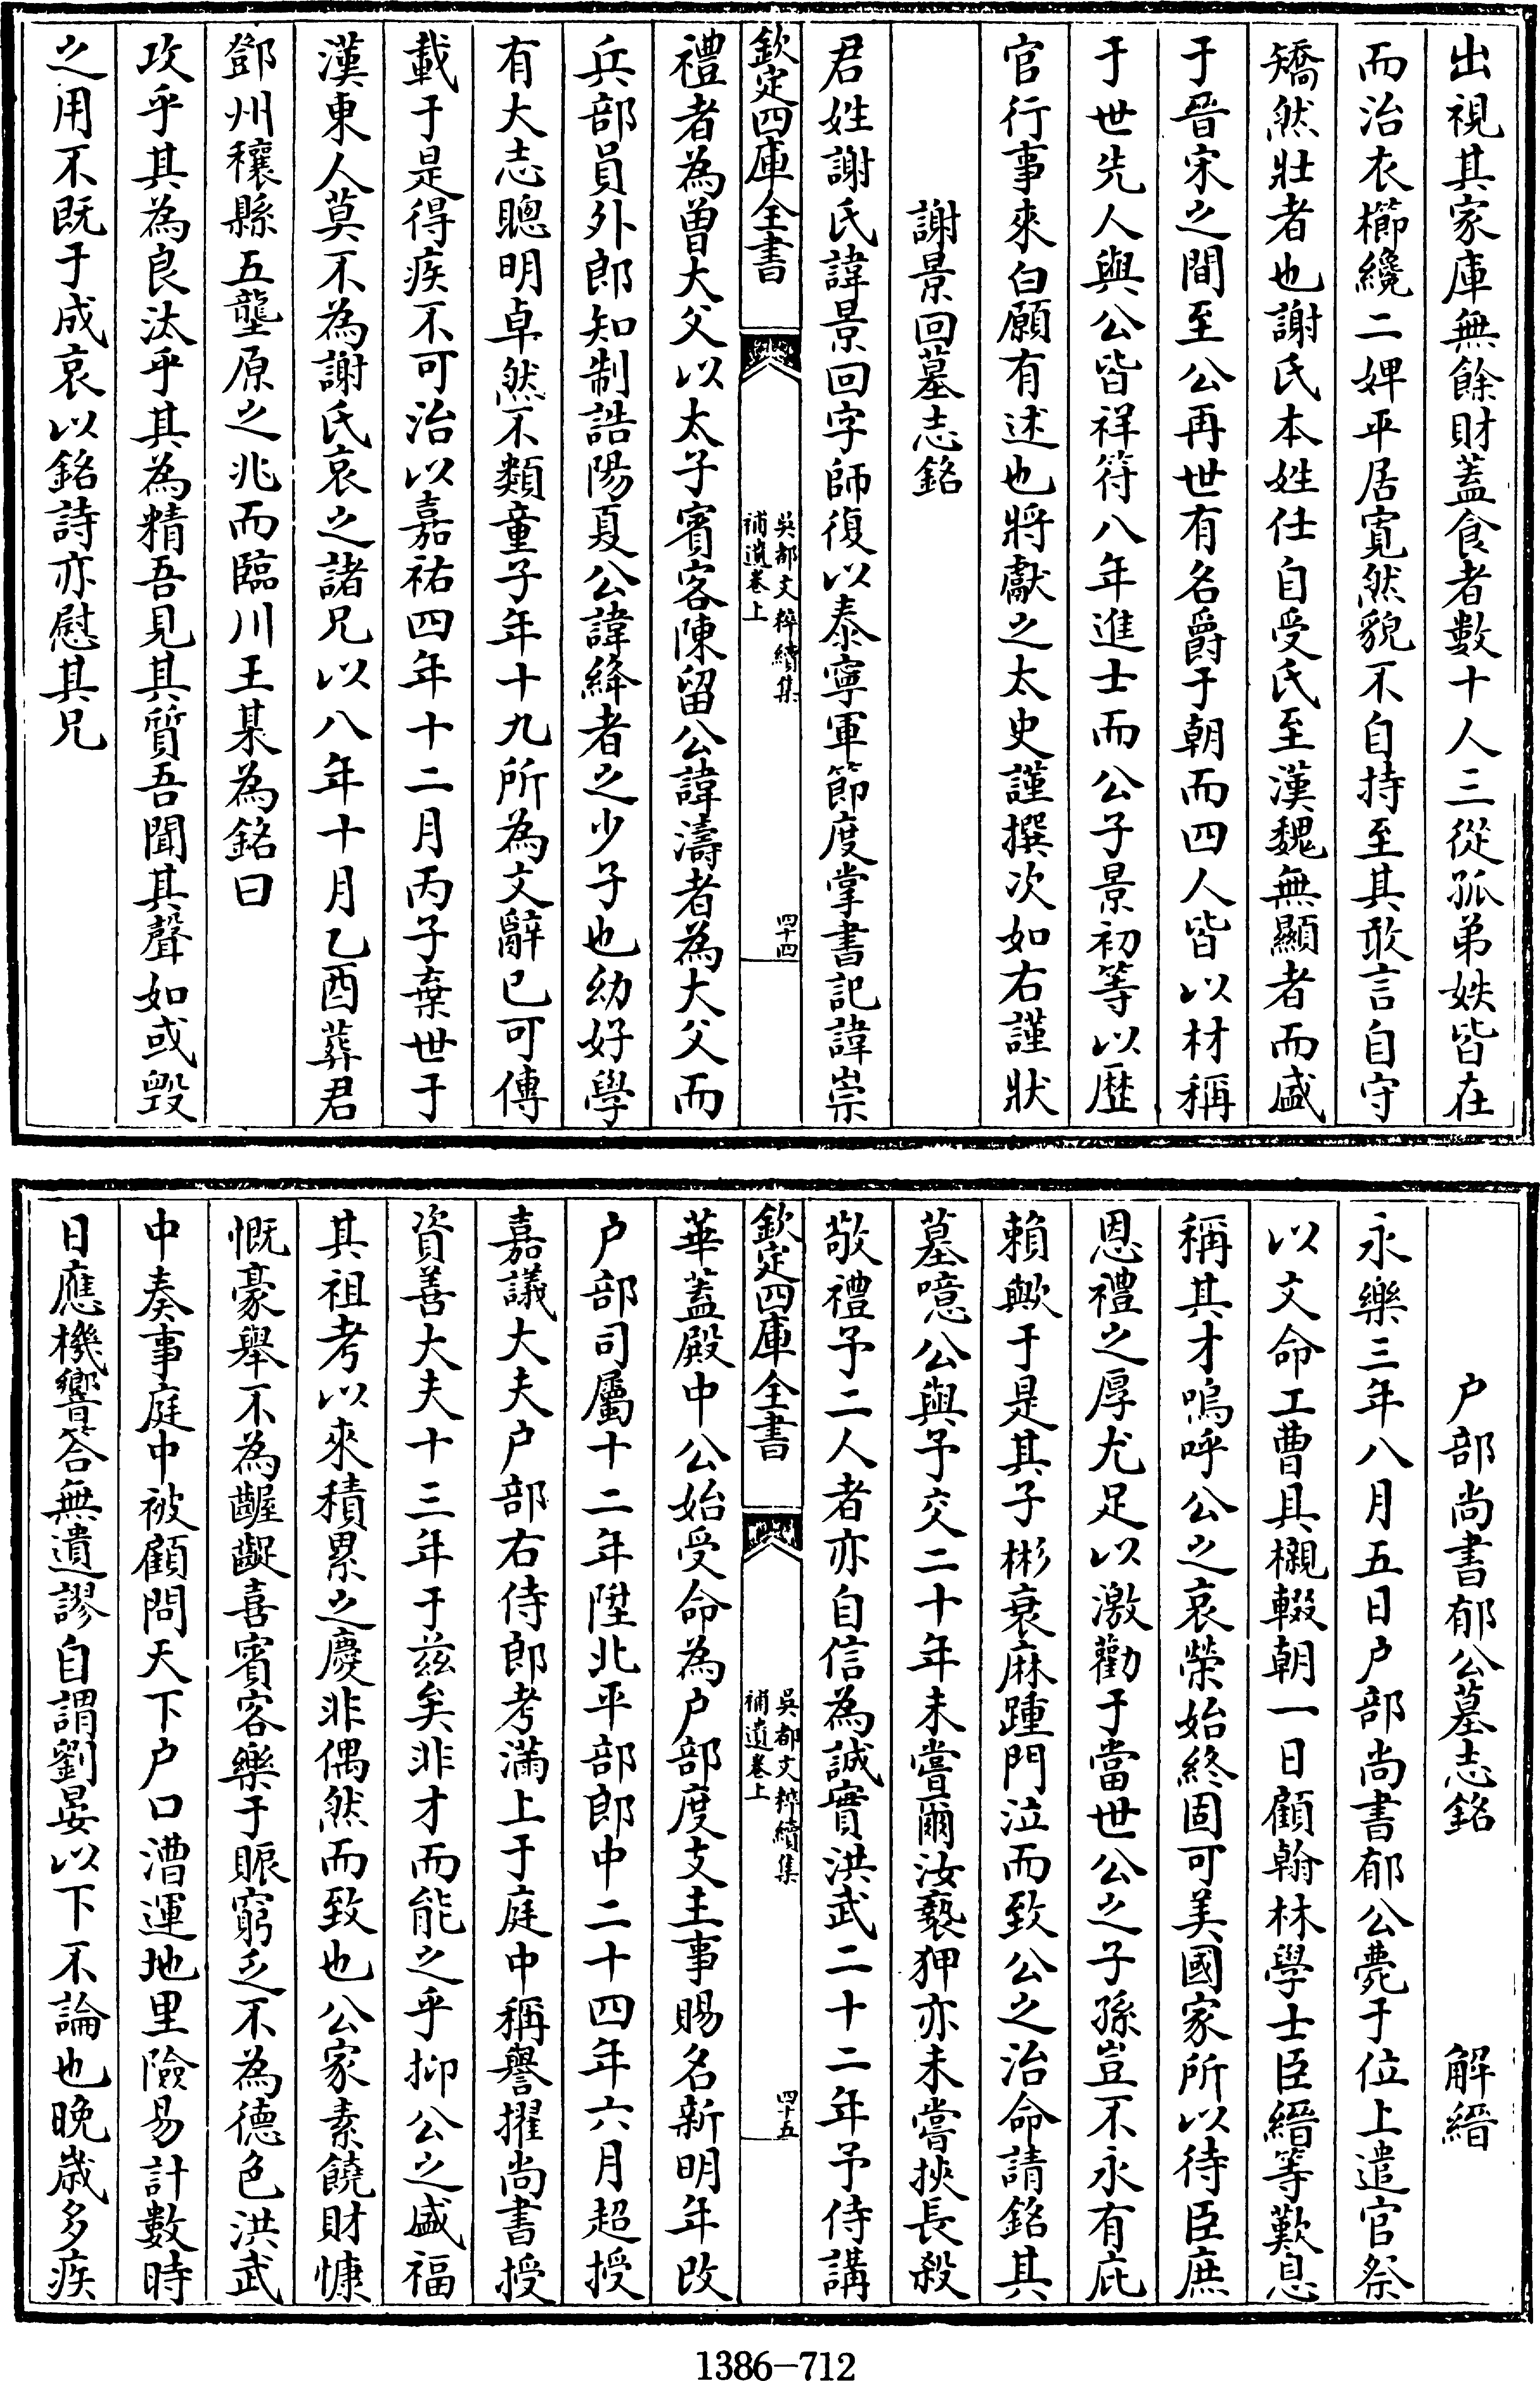 出視其家庫無餘財蓋食者數十人三從孤弟姪皆在
而治衣櫛纔二婢平居寬然貌不自持至其敢言自守
矯然壯者也謝氏本姓任自受氏至漢魏無顯者而盛
于晉宋之間至公再世有名爵于朝而四人皆以材稱
于世先人與公皆祥符八年進士而公子景初等以歴
官行事來白願有述也將獻之太史謹撰次如右謹狀
謝景回墓志銘
君姓謝氏諱景回字師復以泰寧軍節度掌書記諱崇
欽定四庫全書
吳都文粹續集
補遺卷上
四十四
禮者為曽大父以太子賓客陳留公諱濤者為大父而
兵部員外郎知制誥陽夏公諱絳者之少子也幼好學
有大志聰明卓然不類童子年十九所為文辭已可傳
載于是得疾不可治以嘉祐四年十二月丙子棄世于
漢東人莫不為謝氏哀之諸兄以八年十月乙酉葬君
鄧州穰縣五壟原之兆而臨川王某為銘曰
攻乎其為良汰乎其為精吾見其質吾聞其聲如或毀
之用不既于成哀以銘詩亦慰其兄
户部尚書郁公墓志銘　解縉
永樂三年八月五日户部尚書郁公薨于位上遣官祭
以文命工曹具櫬輟朝一日顧翰林學士臣縉等歎息
稱其才嗚呼公之哀榮始終固可美國家所以待臣庶
恩禮之厚尤足以激勸于當世公之子孫豈不永有庇
賴歟于是其子彬衰麻踵門泣而致公之治命請銘其
墓噫公與予交二十年未嘗爾汝褻狎亦未嘗挾長殺
敬禮予二人者亦自信為誠實洪武二十二年予侍講
欽定四庫全書
吳都文粹續集
補遺卷上
四十五
華蓋殿中公始受命為户部度支主事賜名新明年改
户部司屬十二年陞北平部郎中二十四年六月超授
嘉議大夫户部右侍郎考滿上于庭中稱譽擢尚書授
資善大夫十三年于兹矣非才而能之乎抑公之盛福
其祖考以來積累之慶非偶然而致也公家素饒財慷
慨豪舉不為齷齪喜賓客樂于賑窮乏不為德色洪武
中奏事庭中被顧問天下户口漕運地里險易計數時
日應機響答無遺謬自謂劉晏以下不論也晚歲多疾
1386-712